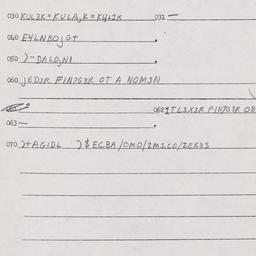 030 KUL3K=KULA,K=K4L2K 032 —
040 E4LNBO;G+
050 )-DALO,NI
060 JED3R FIN7G3R OT A NOM3N
062 TL3X3R FIN7G3R OB
063 —
070 )+AGIDL )$ECBA/OMO/2M3.CO/2ER3S